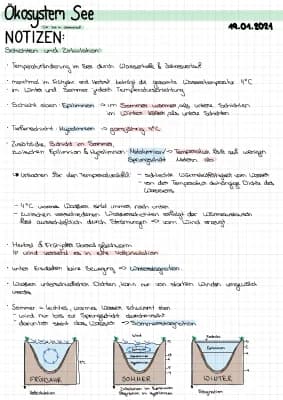 Ökosystem See
19.01.2021
NOTIZEN:
Schichten und Zirkulation:
· Temperaturänderung im See durch Wassertiefe & Jahresverlauf
· manchmal im Frühjahr und Herbst beträgt die gesamte Wassertemperatur 4°C
im Winter und Sommer jedoch Temperaturschichtung
· Schicht oben: Epilimnion → im Sommer wärmer als untere Schichten
im Winter kälter als untere Schichten
· Tiefenschicht: Hypolimnion → ganzjährig 4°C
· Zusätzliche Schicht im Sommer
zwischen Epilimnion & Hypolimnion: Metalimnion/ → Temperatur fällt auf wenigen
Sprungschicht Metern
→ Ursachen für den Temperaturabfall: - schlechte Wärmeleitfähigkeit vom Wasser
- von der Temperatur abhängige Dichte des Wassers
- 4°C warmes Wasser sinkt immer nach unten
- zwischen verschiedenen Wasserschichten erfolgt der Wärmeaustausch
fast ausschließlich durch Strömungen → vom Wind erzeugt
· Herbst & Frühjahr:
wind
· unter Eisdecken keine Bewegung → Winterstagnation
· Wassser unterschiedlicher Dichten kann nur von starken Winden umgewälzt
werden
· Sommer = leichtes, warmes Wasser schwimmt oben
- wird nur bis zur Sprungschicht durchmischt
- darunter steht das Wasser → Sommerstagnation
FRÜHJAHR
SOMMER
WINTER
Wind
Epilimnion
Hypolimnion
Stagnation